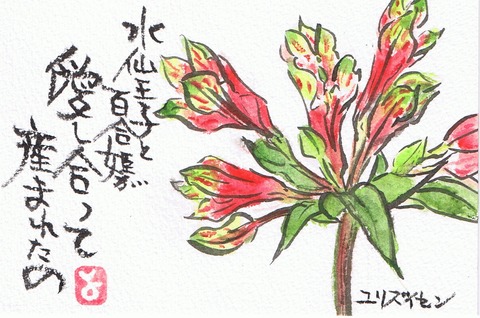 水仙王子と
百合媛が
愛し合って
産まれたの
ユリズイセン